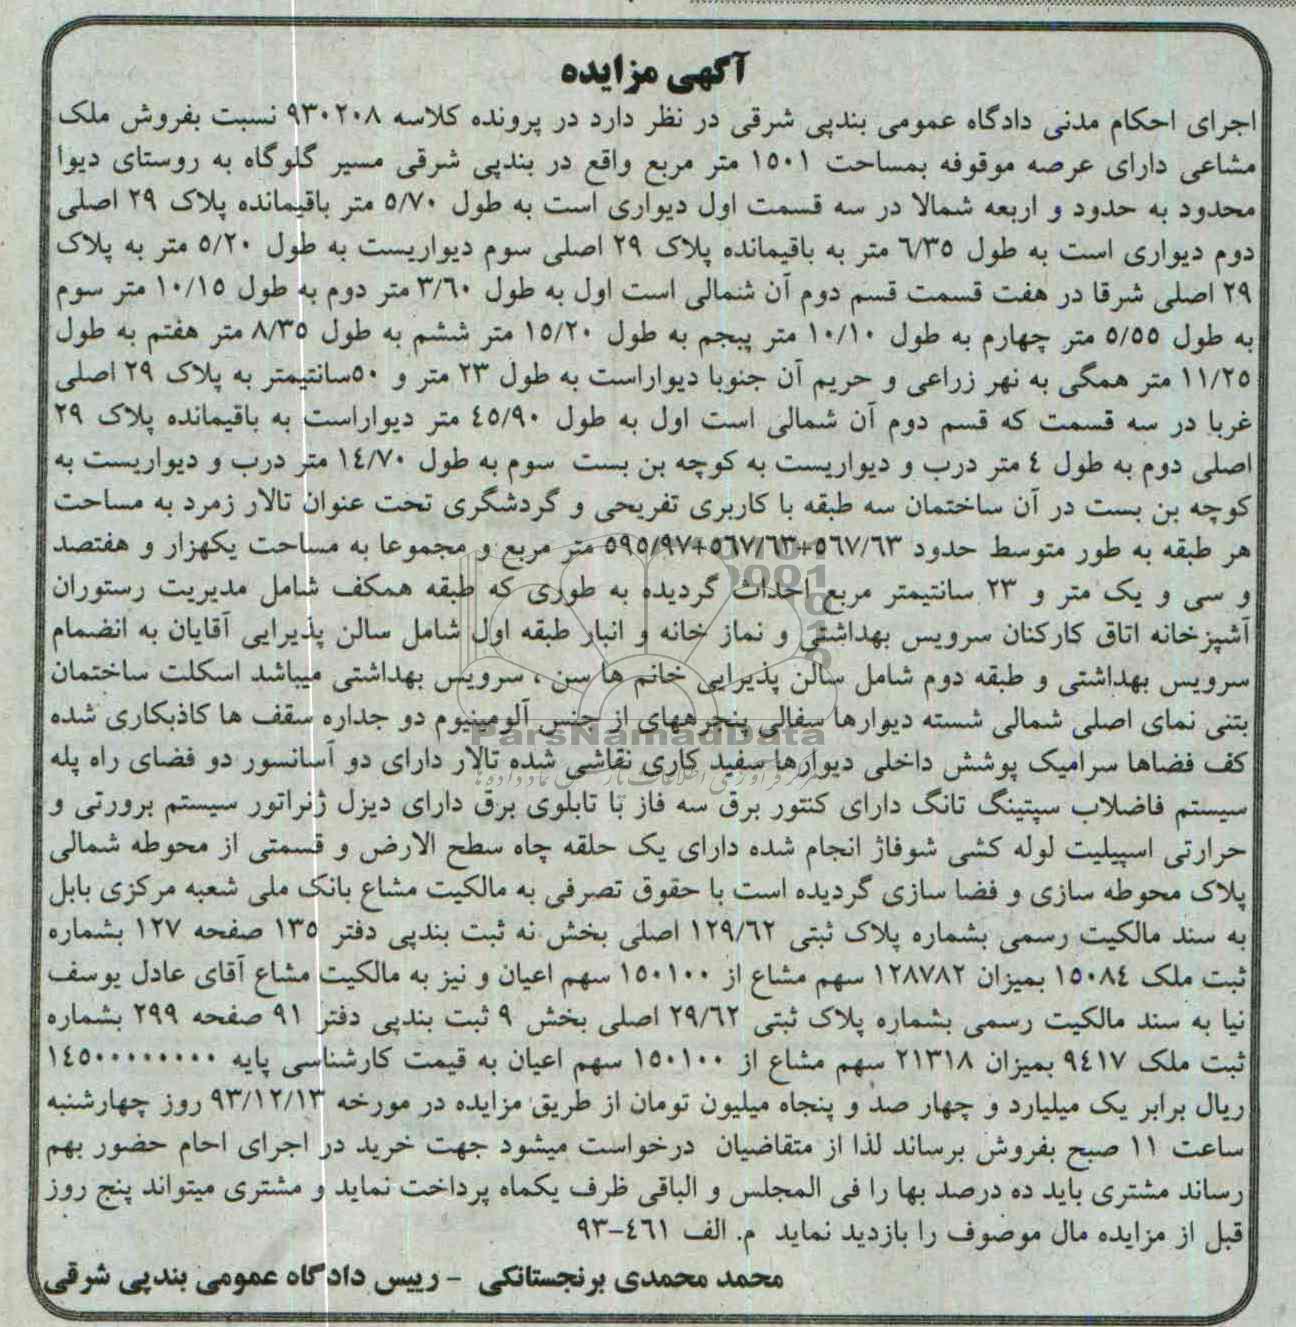 آگهی مزایده
اجرای احکام مدنی دادگاه عمومی بندپی شرقی در نظر دارد در پرونده کلاسه ۹۳۰۲۰۸ نسبت بفروش ملک
مشاعی دارای عرصه موقوفه بمساحت ۱۵۰۱ متر مربع واقع در بندپی شرقی مسیر گلوگاه به روستای دیوا
محدود به حدود و اربعه شمالا در سه قسمت اول دیواری است به طول ۵/۷۰ متر باقیمانده پلاک ۲۹ اصلی
دوم دیواری است به طول ۶/۳۵ متر به باقیمانده پلاک ۲۹ اصلی سوم دیواریست به طول ۵/۲۰ متر به پلاک
۲۹ اصلی شرقا در هفت قسمت قسم دوم آن شمالی است اول به طول ۳/۶۰ متر دوم به طول ۱۰/۱۵ متر سوم
به طول ۵/۵۵ متر چهارم به طول ۱۰/۱۰ متر پبجم به طول ۱۵/۲۰ متر ششم به طول ۸/۳۵ متر هفتم به طول
۱۱/۲۵ متر همگی به نهر زراعی و حریم آن جنوبا دیواراست به طول ۲۳ متر و ۵۰سانتیمتر به پلاک ۲۹ اصلی
غربا در سه قسمت که قسم دوم آن شمالی است اول به طول ۴۵/۹۰ متر دیواراست به باقیمانده پلاک ۲۹
اصلی دوم به طول ۴ متر درب و دیواریست به کوچه بن بست سوم به طول ۱۴/۷۰ متر درب و دیواریست به
کوچه بن بست در آن ساختمان سه طبقه با کاربری تفریحی و گردشگری تحت عنوان تالار زمرد به مساحت
هر طبقه به طور متوسط حدود ۵۶۷/۶۳+۵۶۷/۶۳+۵۹۵/۹۷ متر مربع و مجموعا به مساحت یکهزار و هفتصد
و سی و یک متر و ۲۳ سانتیمتر مربع احداث گردیده به طوری که طبقه همکف شامل مدیریت رستوران
آشپزخانه اتاق کارکنان سرویس بهداشتی و نماز خانه و انبار طبقه اول شامل سالن پذیرایی آقایان به انضمام
سرویس بهداشتی و طبقه دوم شامل سالن پذیرایی خانم ها سن ، سرویس بهداشتی میباشد اسکلت ساختمان
بتنی نمای اصلی شمالی شسته دیوارها سفالی پنجرههای از جنس آلومینیوم دو جداره سقف ها کاذبکاری شده
کف فضاها سرامیک پوشش داخلی دیوارها سفید کاری نقاشی شده تالار دارای دو آسانسور دو فضای راه پله
سیستم فاضلاب سپتینگ تانگ دارای کنتور برق سه فاز با تابلوی برق دارای دیزل ژنراتور سیستم برورتی و
حرارتی اسپیلیت لوله کشی شوفاژ انجام شده دارای یک حلقه چاه سطح الارض و قسمتی از محوطه شمالی
پلاک محوطه سازی و فضا سازی گردیده است با حقوق تصرفی به مالکیت مشاع بانک ملی شعبه مرکزی بابل
به سند مالکیت رسمی بشماره پلاک ثبتی ۱۲۹/۶۲ اصلی بخش نه ثبت بندپی دفتر ۱۳۵ صفحه ۱۲۷ بشماره
ثبت ملک ۱۵۰۸۴ بمیزان ۱۲۸۷۸۲ سهم مشاع از ۱۵۰۱۰۰ سهم اعیان و نیز به مالکیت مشاع آقای عادل یوسف
نیا به سند مالکیت رسمی بشماره پلاک ثبتی ۲۹/۶۲ اصلی بخش ۹ ثبت بندپی دفتر ۹۱ صفحه ۲۹۹ بشماره
ثبت ملک ۹۴۱۷ بمیزان ۲۱۳۱۸ سهم مشاع از ۱۵۰۱۰۰ سهم اعیان به قیمت کارشناسی پایه ۱۴۵۰۰۰۰۰۰۰۰
ریال برابر یک میلیارد و چهار صد و پنجاه میلیون تومان از طریق مزایده در مورخه ۹۳/۱۲/۱۳ روز چهارشنبه
ساعت ۱۱ صبح بفروش برساند لذا از متقاضیان درخواست میشود جهت خرید در اجرای احام حضور بهم
رساند مشتری باید ده درصد بها را فی المجلس و الباقی ظرف یکماه پرداخت نماید و مشتری میتواند پنج روز
قبل از مزایده مال موصوف را بازدید نماید م. الف ۴۶۱-۹۳
محمد محمدی برنجستانکی - رییس دادگاه عمومی بندپی شرقی
ParsNamadData